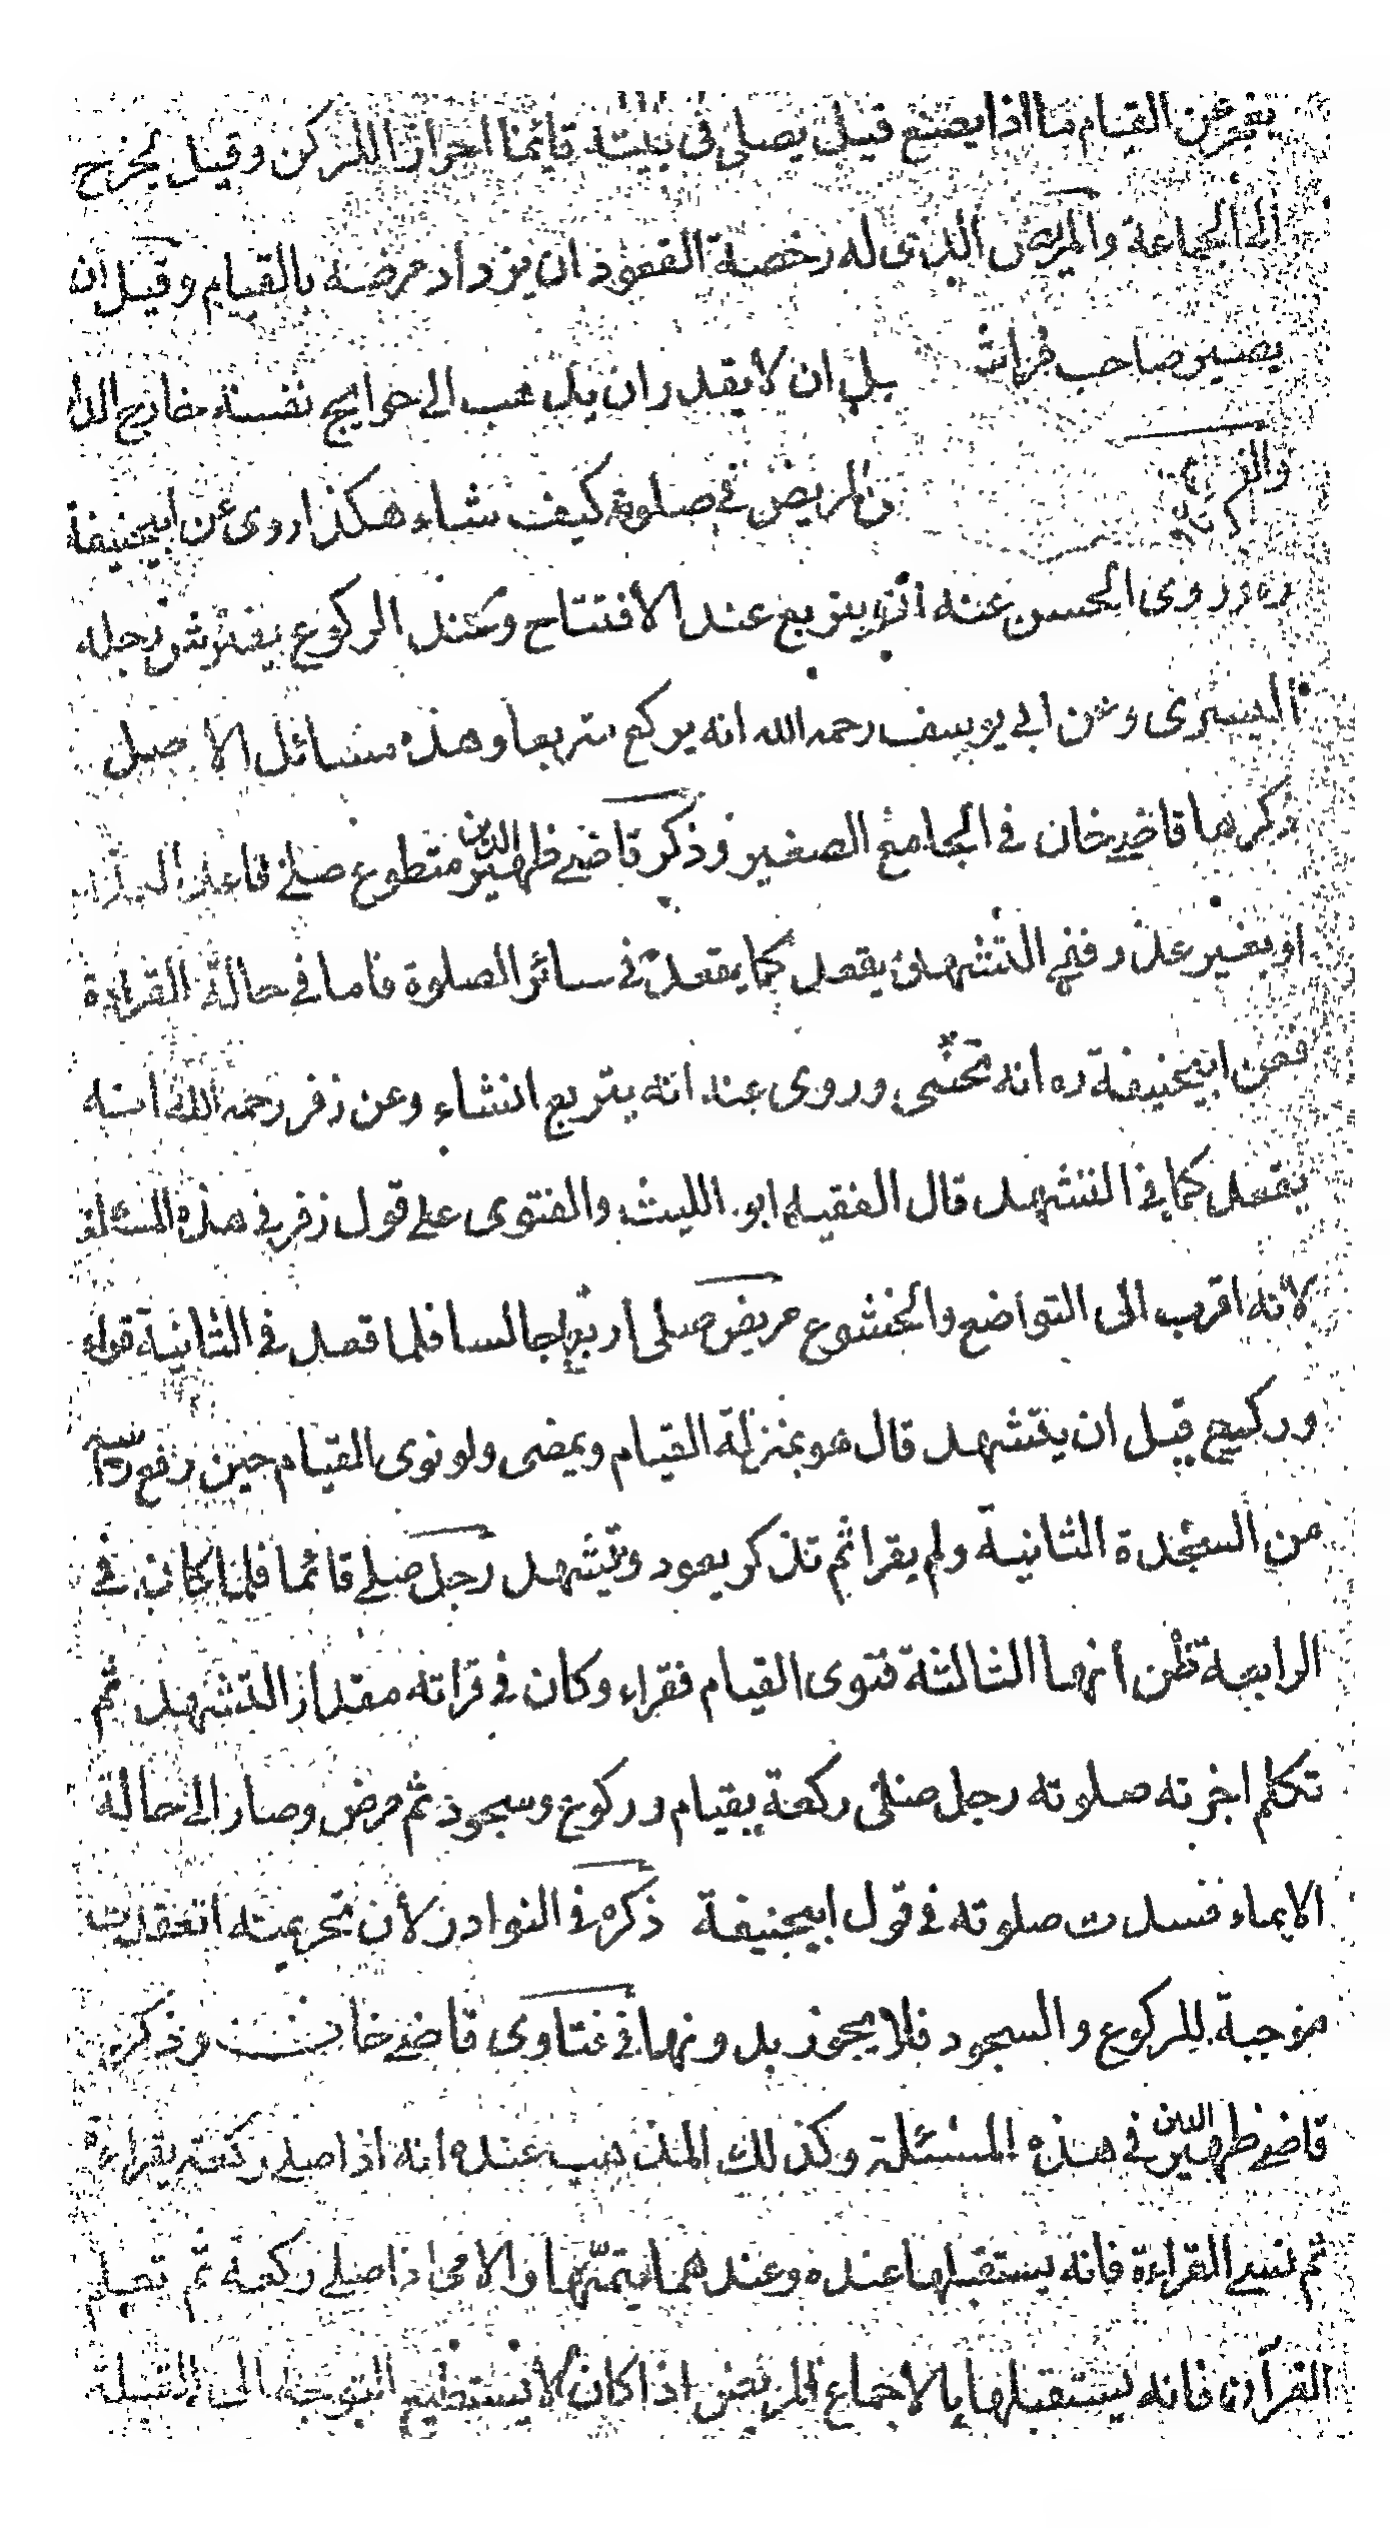 يعجز عن القيام ماذا يصنع قيل يصلى فى بيته قائما احرازا للركن وقيل يخرج
الى الجماعة والمريض الذى له رخصة القعود ان يزداد مرضه بالقيام وقيل ان
يصير صاحب فراش بل ان لا يقدر ان يذهب الى حوايج نفسه خارج الدار
المريض فى صلوته كيف شاء هكذا روى عن ابيحنيفة
ره وروى الحسن عنه انه يتربع عند الافتتاح وعند الركوع يفترش رجله
اليسرى وعن ابى يوسف رحمه الله انه يركع متربعا وهذه مسائل الاصل
ذكرها قاضيخان فى الجامع الصغير وذكر قاضى ظهير الدين متطوع صلى قاعدا
او بغير عذر ففى التشهد يقعد كما يقعد فى سائر الصلوة فاما فى حالة القراءة
فعن ابيحنيفة ره انه تحتبى وروى عنه انه يتربع انشاء وعن زفر رحمه الله انه
يقعد كما فى التشهد قال الفقيه ابو الليث والفتوى على قول زفر فى هذه المسئلة
لانه اقرب الى التواضع والخشوع مريض صلى اربعا جالسا فلما قعد فى الثانية قراء
وركع قبل ان يتشهد قال هو بمنزلة القيام ويمضى ولو نوى القيام حين رفع رأسه
من السجدة الثانية ولم يقرا ثم تذكر يعود ويتشهد رجل صلى قائما فلما كان فى
الرابعة ظن انها الثالثة فنوى القيام فقراء وكان فى قراته مقدار التشهد ثم
تكلم اخرته صلوته رجل صلى ركعة بقيام وركوع وسجود ثم مرض وصار الى حالة
الايماء فسدت صلوته فى قول ابيحنيفة ذكره فى النوادر لأن تحريمته انعقدت
موجبة للركوع والسجود فلا يجوز بدونها فى فتاوى قاضى خان وذكر
قاضى ظهير الدين فى هذه المسئلة وكذلك المذهب عنده انه اذا صلى ركعة بقراءة
ثم نسى القراءة فانه يستقبلها عنده وعندهما يتمّها والامى اذا صلى ركعة ثم تعلم
القرآن فانه يستقبلها بالاجماع المريض اذا كان لا يستطيع التوجه الى القبلة